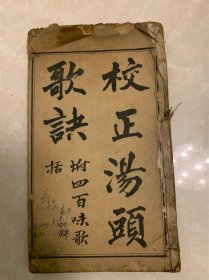 校正湯頭
歌訣
坿四百味歌
括